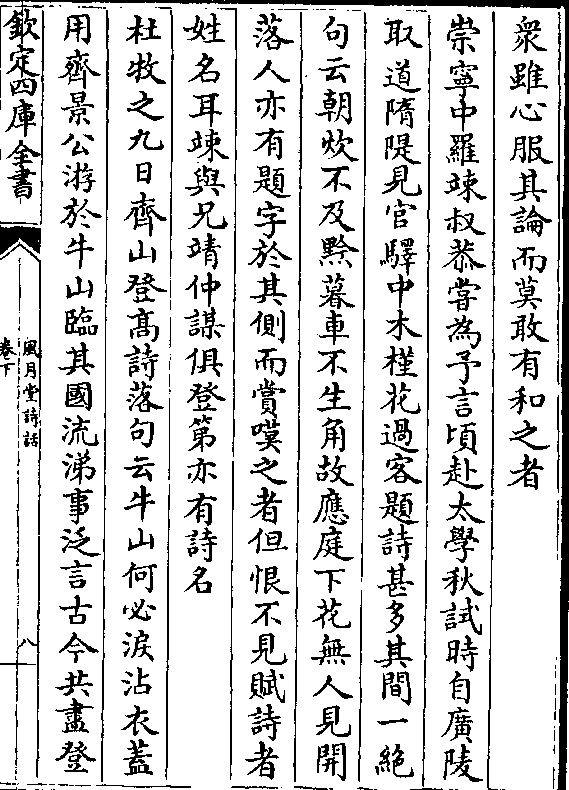 衆雖心服其論而莫敢有和之者
崇寧中羅竦叔恭嘗為予言頃赴太學秋試時自廣陵
取道隋隄見官驛中木槿花過客題詩甚多其間一絶
句云朝炊不及黔暮車不生角故應庭下花無人見開
落人亦有題字於其側而賞嘆之者但恨不見賦詩者
姓名耳竦與兄靖仲謀俱登第亦有詩名
杜牧之九日齊山登髙詩落句云牛山何必淚沾衣蓋
用齊景公游於牛山臨其國流涕事泛言古今共盡登
欽定四庫全書
風月堂詩話
卷下
八